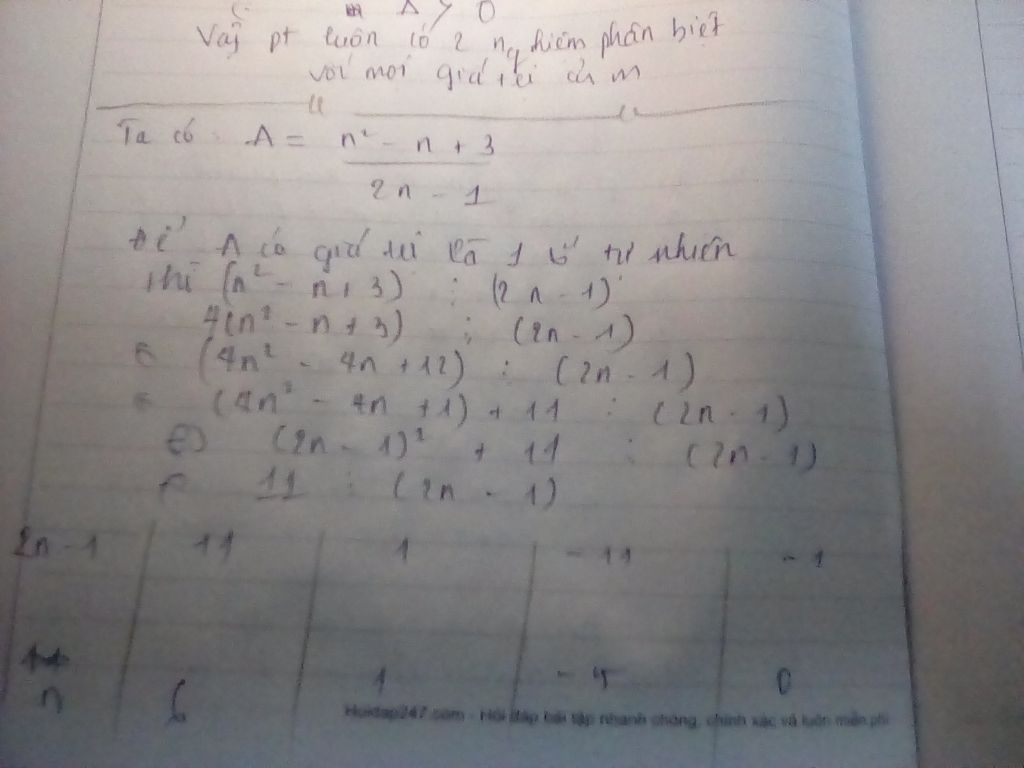 Δ > 0
Vậy pt luôn có 2 nghiệm phân biệt
với mọi giá trị của m
Ta có A = n² - n + 3
2n - 1
Để A có giá trị là 1 số tự nhiên
thì (n² - n + 3) ⋮ (2n - 1)
4(n² - n + 3) ⋮ (2n - 1)
(4n² - 4n + 12) ⋮ (2n - 1)
(4n² - 4n + 1) + 11 ⋮ (2n - 1)
⇔ (2n - 1)² + 11 ⋮ (2n - 1)
11 ⋮ (2n - 1)
2n - 1 11 1 -11 -1
n 6 1 -5 0
Hoidap247.com - Hỏi đáp bài tập nhanh chóng, chính xác và luôn miễn phí